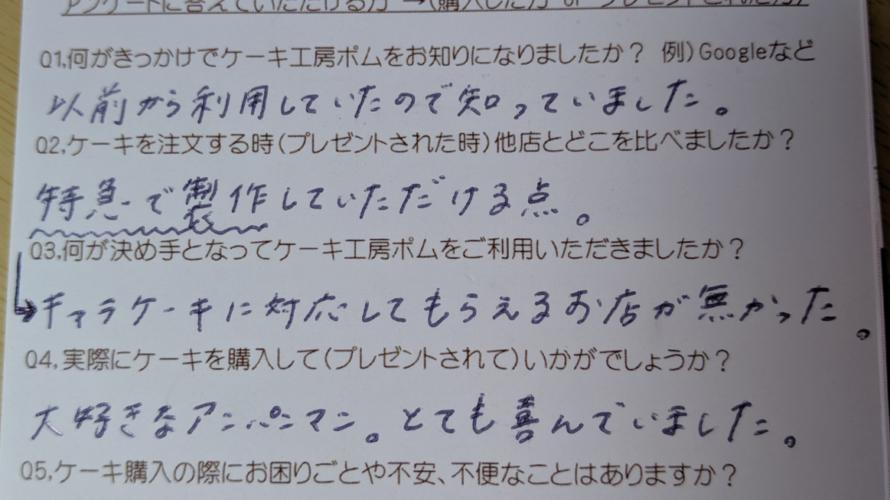 アンケートに答えていただける方 →(購入した方 or プレゼントされた方)
Q1,何がきっかけでケーキ工房ポムをお知りになりましたか? 例)Googleなど
以前から利用していたので知っていました。
Q2,ケーキを注文する時(プレゼントされた時)他店とどこを比べましたか?
特急で製作していただける点。
Q3,何が決め手となってケーキ工房ポムをご利用いただきましたか?
キャラケーキに対応してもらえるお店が無かった。
Q4,実際にケーキを購入して(プレゼントされて)いかがでしょうか?
大好きなアンパンマン。とても喜んでいました。
Q5,ケーキ購入の際にお困りごとや不安、不便なことはありますか?